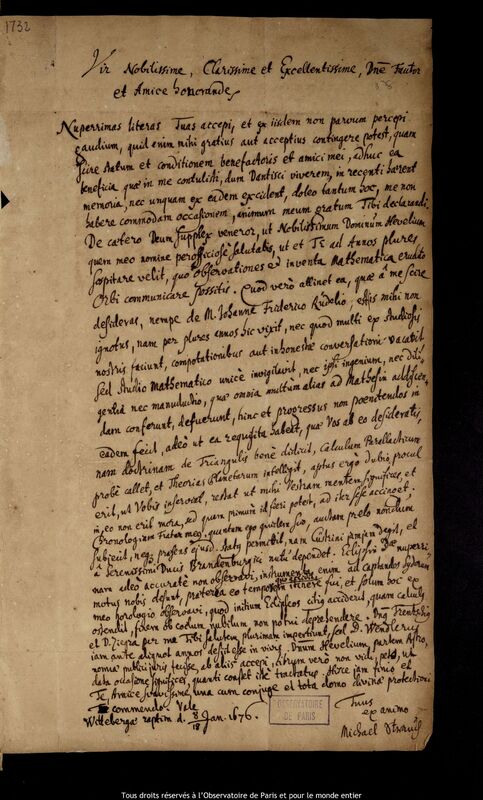 1732
Vir Nobilissime, Clarissime et Excellentissime, Dne Fautor
et Amice honorande
Nuperrimas literas Tuas accepi, et ex iisdem non parvum percepi
gaudium, quid enim mihi gratius aut acceptius contingere potest, quam
scire statum et conditionem benefactoris et amici mei, adhuc ea
beneficia quæ in me contulisti, dum Dantisci viverem, in recenti hærent
memoria, nec unquam ex eadem excident, doleo tantum hoc, me non
habere commodam occasionem, animum meum gratum Tibi declarandi.
De cætero Deum supplex veneror, ut Nobilissimum Dominum Hevelium
quem meo nomine perofficiose salutabis, ut et Te ad Annos plures
sospitare velit, quo observationes et inventa Mathematica erudito
Orbi communicare possitis. Quod verò attinet ea, quæ à me scire
desideras, nempe de M. Johanne Friderico Rudelio; est is mihi non
ignotus, nam per plures annos hic vixit, nec quod multi ex Studiosis
nostris faciunt, compotationibus aut inhonestæ conversationi vacabit
sed Studio Mathematico unicè invigilavit, nec ipsi ingenium, nec dili-
gentia nec manuductio, quæ omnia multum aliàs ad Mathesin addiscen-
dam conferunt, defuerunt, hinc et progressus non poenitendos in
eadem fecit, adeò ut ea requisita habeat, quæ Vos ab eo desideratis,
nam doctrinam de Triangulis benè didicit, Calculum Parallacticum
probè callet, et Theorias Planetarum intelligit, aptus ergò dubio procul
erit, ut Vobis inserviat, restat ut mihi Vestram mentem significes, et
in eo non erit mora, sed quam primùm id fieri potest, ad iter sese accinget.
Chronologiam Frater meus, quantum ego quidem scio, nondum prelo
subjecit, neque præsens ejusd. status permittit, nam Castrini degit, et
à Serenissimi Ducis Brandenburgici nutu dependet. Eclipsin nuperri
nam adeò accuratè non observavi, instrumenta enim ad captandos syderum
motus nobis desunt, præterea eo tempore in itinere fui, et solum hoc ex
meo horologio observavi, quod initium Eclipseos citiùs acciderit, quam calculus
ostendit, finem ob coelum nubilum non potui deprehendere.
et D. Ziegra per me Tibi Salutem plurimam impertiunt, sed D. Wendlerus
jam ante aliquot annos desiit esse in vivis. Dnum Hevelium partem Astro-
nomiæ publici juris fecisse, ab aliis accepi, librum verò non vidi, peto, ut
data occasione significes, quanti constet iste tractatus. Hisce jam finio et
Te, Amice suavissime, una cum conjuge et tota domo divinæ protectioni
commendo. Vale
Wittebergæ raptim d. 8/18 Jan. 1676.
Tuus
ex animo
Michael Strauch
OBSERVATOIRE
DE PARIS
Tous droits réservés à l'Observatoire de Paris et pour le monde entier